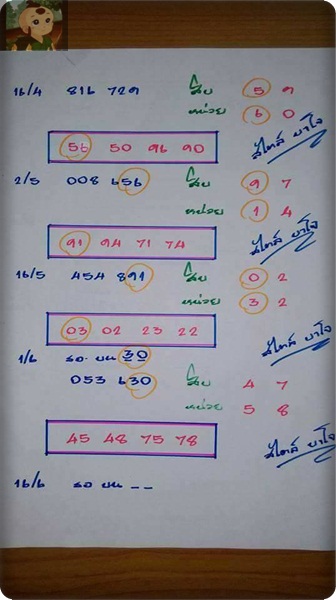 16/4 816 729 สิบ 5 9
หน่วย 6 0
สไตล์ ยาใจ
56 50 96 90
2/5 008 656 สิบ 9 7
หน่วย 1 4
สไตล์ ยาใจ
91 94 71 74
16/5 454 891 สิบ 0 2
หน่วย 3 2
03 02 23 22
สไตล์ ยาใจ
1/6 รอ บน 30
053 630 สิบ 4 7
หน่วย 5 8
45 48 75 78
สไตล์ ยาใจ
16/6 รอ บน _ _